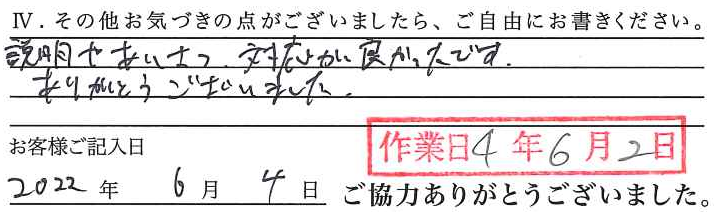 Ⅳ．その他お気づきの点がございましたら、ご自由にお書きください。
説明やあいさつ、対応とかに良かったです。
ありがとうございました。
お客様ご記入日
作業日4年6月2日
2022年6月4日
ご協力ありがとうございました。